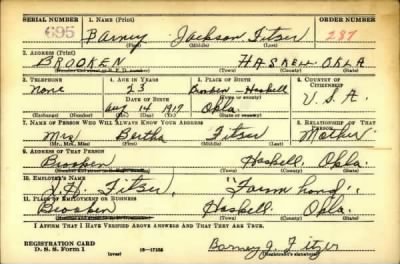 SERIAL NUMBER 1. NAME (Print) ORDER NUMBER
695 Barney Jackson Fitzer 287
(First) (Middle) (Last)
2. ADDRESS (Print)
BROOKEN HASKELL OKLA
(Town) (County) (State)
3. TELEPHONE 4. AGE IN YEARS 5. PLACE OF BIRTH 6. COUNTRY OF CITIZENSHIP
None 23 Brooken-Haskell
DATE OF BIRTH (Town or county)
Aug 14 1917 Okla. U.S.A.
(Exchange) (Number) (Mo.) (Day) (Yr.) (State or country)
7. NAME OF PERSON WHO WILL ALWAYS KNOW YOUR ADDRESS 8. RELATIONSHIP OF THAT PERSON
Mrs Bertha Fitzer Mother
(Mr., Mrs., Miss) (First) (Middle) (Last)
9. ADDRESS OF THAT PERSON
Brooken Haskell. Okla.
(Town) (County) (State)
10. EMPLOYER'S NAME
Fitzer, "Farm hand".
11. PLACE OF EMPLOYMENT OR BUSINESS
Brooken Haskell Okla.
(Town) (County) (State)
I AFFIRM THAT I HAVE VERIFIED ABOVE ANSWERS AND THAT THEY ARE TRUE.
REGISTRATION CARD
D. S. S. Form 1 (over) Barney J. Fitzer
(Registrant's signature)